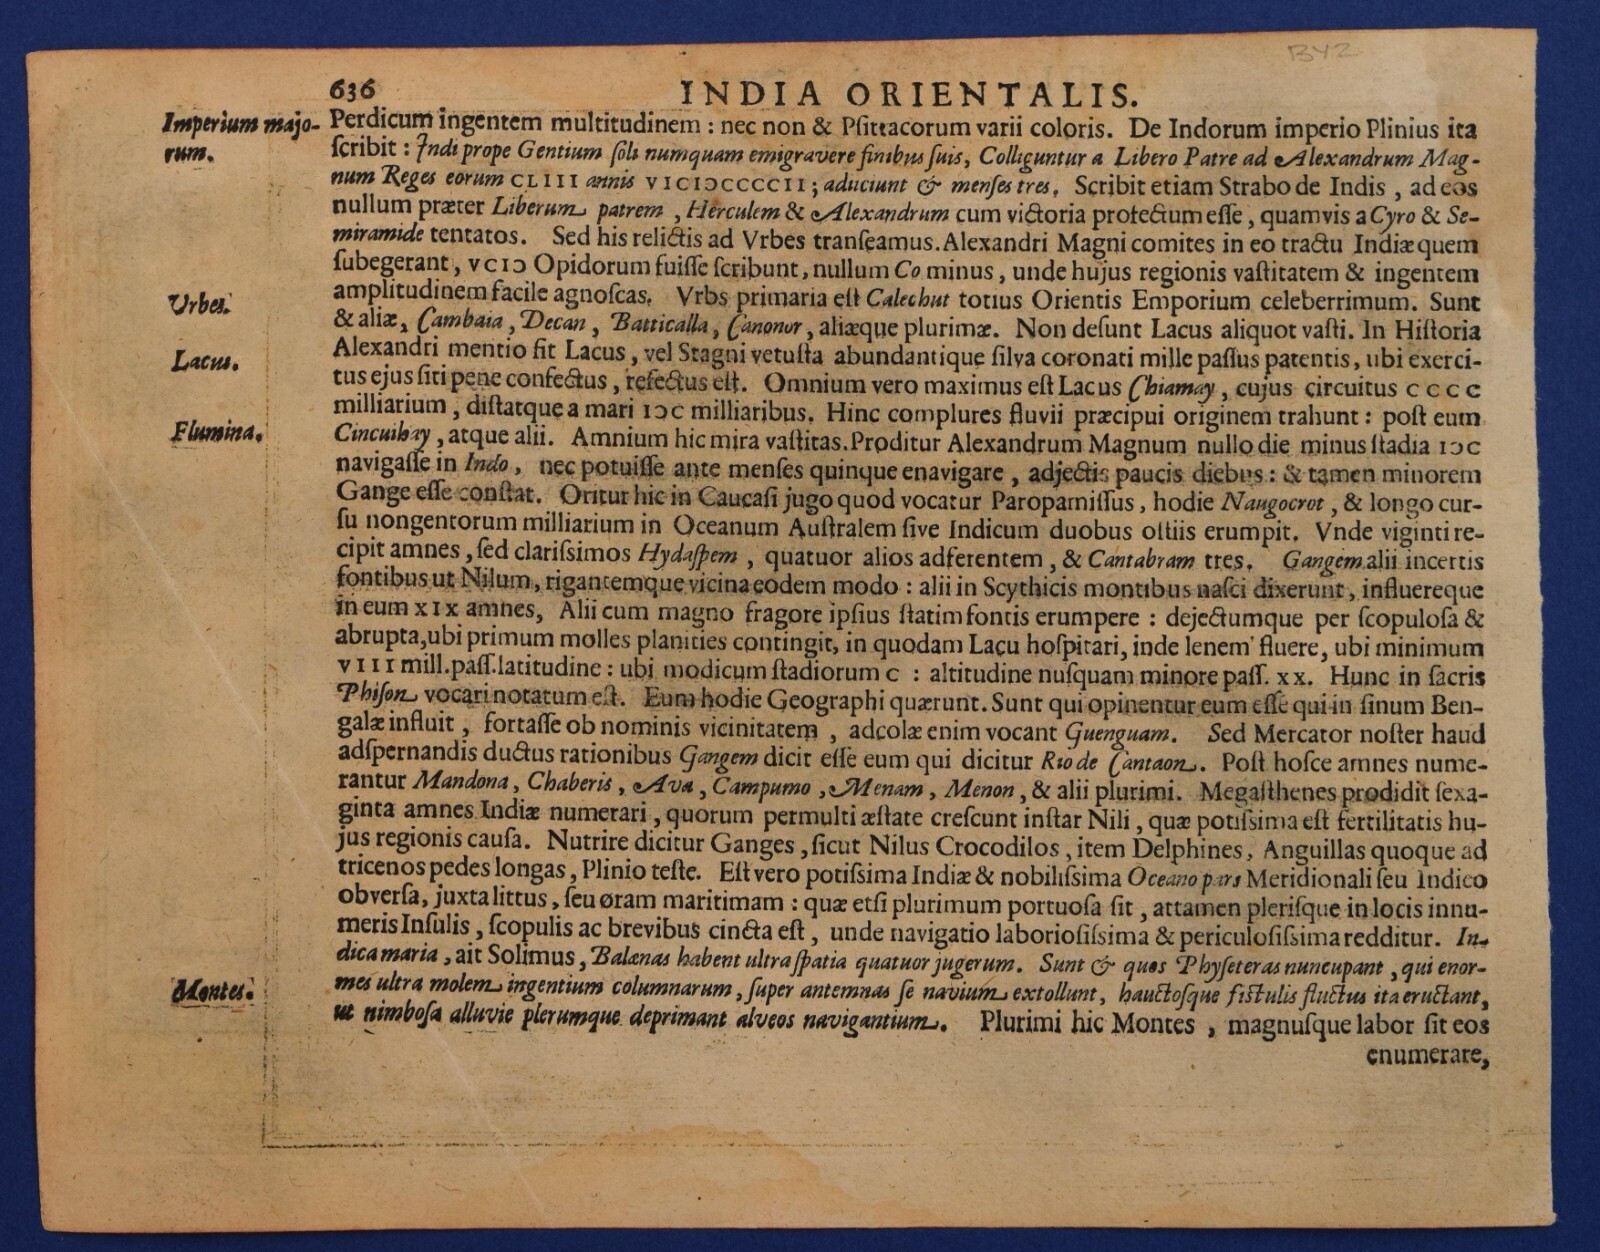 BY2
636
INDIA ORIENTALIS.
Imperium majo-
rum.
Perdicum ingentem multitudinem : nec non & Pſittacorum varii coloris. De Indorum imperio Plinius ita
ſcribit : Indi prope Gentium ſoli numquam emigravere finibus ſuis, Colliguntur a Libero Patre ad Alexandrum Mag-
num Reges eorum CLIII annis VICIↃCCCCII ; adiiciunt & menſes tres. Scribit etiam Strabo de Indis , ad eos
nullum præter Liberum patrem , Herculem & Alexandrum cum victoria profectum eſſe , quamvis a Cyro & Se-
miramide tentatos. Sed his relictis ad Vrbes tranſeamus. Alexandri Magni comites in eo tractu Indiæ quem
ſubegerant , VCIↃ Opidorum fuiſſe ſcribunt , nullum Co minus , unde hujus regionis vaſtitatem & ingentem
Urbes.
amplitudinem facile agnoſcas. Vrbs primaria eſt Calechut totius Orientis Emporium celeberrimum. Sunt
& aliæ, Cambaia , Decan , Batticalla , Canonor , aliæque plurimæ. Non deſunt Lacus aliquot vaſti. In Hiſtoria
Lacus.
Alexandri mentio fit Lacus , vel Stagni vetuſta abundantique ſilva coronati mille paſſus patentis , ubi exerci-
tus ejus ſiti pene confectus , refectus eſt. Omnium vero maximus eſt Lacus Chiamay , cujus circuitus CCCC
milliarium , diſtatque a mari IↃC milliaribus. Hinc complures fluvii præcipui originem trahunt : poſt eum
Flumina.
Cincuihay , atque alii. Amnium hic mira vaſtitas. Proditur Alexandrum Magnum nullo die minus ſtadia IↃC
navigaſſe in Indo , nec potuiſſe ante menſes quinque enavigare , adjectis paucis diebus : & tamen minorem
Gange eſſe conſtat. Oritur hic in Caucaſi jugo quod vocatur Paropamiſſus , hodie Naugocrot , & longo cur-
ſu nongentorum milliarium in Oceanum Auſtralem ſive Indicum duobus oſtiis erumpit. Vnde viginti re-
cipit amnes , ſed clariſsimos Hydaſpem , quatuor alios adferentem , & Cantabram tres. Gangem alii incertis
fontibus ut Nilum, rigantemque vicina eodem modo : alii in Scythicis montibus naſci dixerunt , influereque
in eum XIX amnes, Alii cum magno fragore ipſius ſtatim fontis erumpere : dejectumque per ſcopuloſa &
abrupta, ubi primum molles planities contingit, in quodam Lacu hoſpitari, inde lenem fluere, ubi minimum
VIII mill. paſſ. latitudine : ubi modicum ſtadiorum C : altitudine nuſquam minore paſſ. XX. Hunc in ſacris
Phiſon vocari notatum eſt. Eum hodie Geographi quærunt. Sunt qui opinentur eum eſſe qui in ſinum Ben-
galæ influit , fortaſſe ob nominis vicinitatem , adcolæ enim vocant Guenguam. Sed Mercator noſter haud
adſpernandis ductus rationibus Gangem dicit eſſe eum qui dicitur Rio de Cantaon. Poſt hoſce amnes nume-
rantur Mandona , Chaberis , Ava , Campumo , Menam , Menon , & alii plurimi. Megaſthenes prodidit ſexa-
ginta amnes Indiæ numerari , quorum permulti æſtate creſcunt inſtar Nili , quæ potiſsima eſt fertilitatis hu-
jus regionis cauſa. Nutrire dicitur Ganges , ſicut Nilus Crocodilos , item Delphines, Anguillas quoque ad
tricenos pedes longas , Plinio teſte. Eſt vero potiſsima Indiæ & nobiliſsima Oceano pars Meridionali ſeu Indico
obverſa, juxta littus , ſeu oram maritimam : quæ etſi plurimum portuoſa ſit , attamen pleriſque in locis innu-
meris Inſulis , ſcopulis ac brevibus cincta eſt , unde navigatio laborioſiſsima & periculoſiſsima redditur. In-
dica maria , ait Solimus , Balænas habent ultra ſpatia quatuor jugerum. Sunt & quos Phyſeteras nuncupant , qui enor-
Montes.
mes ultra molem ingentium columnarum , ſuper antemnas ſe navium extollunt, hauctoſque fiſtulis fluctus ita eructant,
ut nimboſa alluvie plerumque deprimant alveos navigantium. Plurimi hic Montes , magnuſque labor ſit eos
enumerare,